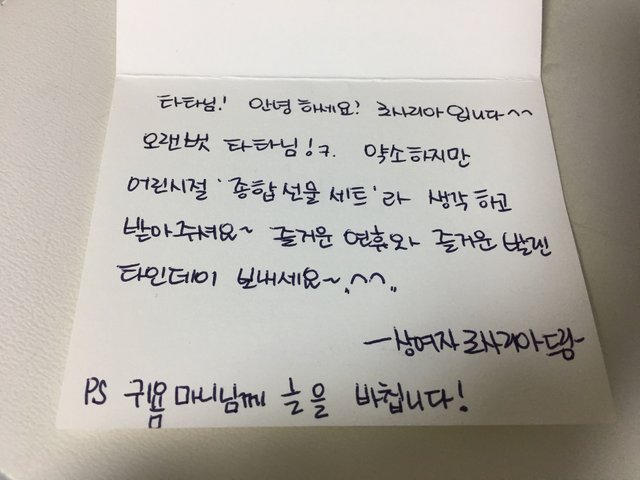 타타님! 안녕하세요? 로사리아입니다^^
오랜벗 타타님!ㅋ. 약소하지만
어린시절 '종합선물세트'라 생각하고
받아주셔요~ 즐거운 연휴와 즐거운 발렌
타인데이 보내세요~^^
-상여자 로사리아드림-
PS 귀욤마니님께 늘을 바칩니다!